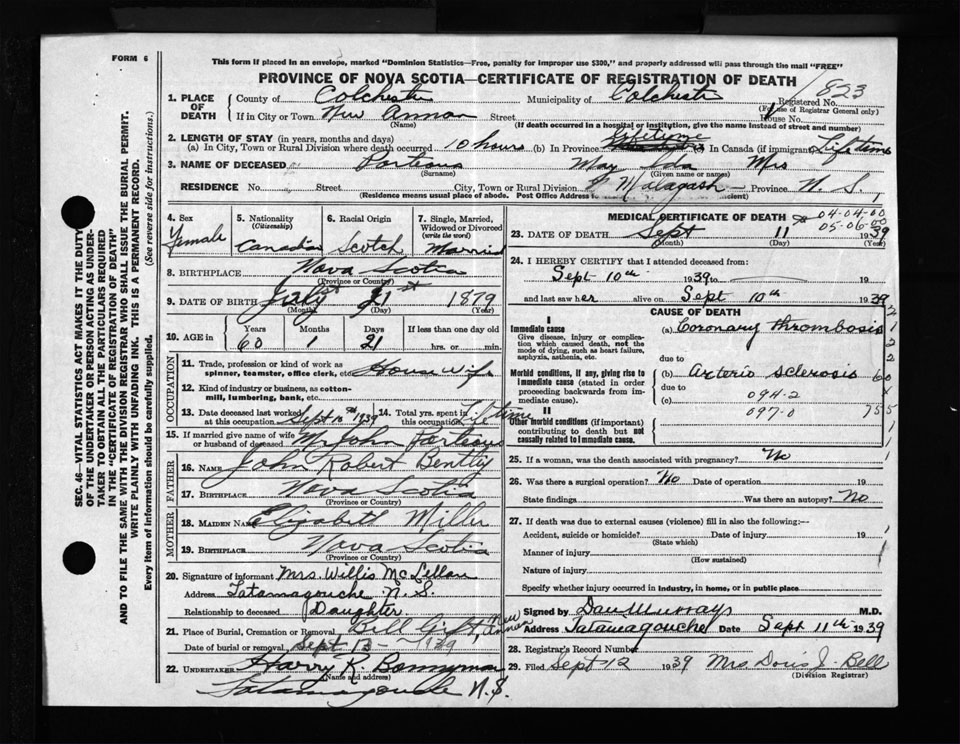 FORM 6
This form if placed in an envelope, marked "Dominion Statistics—Free, penalty for improper use $300," and properly addressed will pass through the mail "FREE"
PROVINCE OF NOVA SCOTIA—CERTIFICATE OF REGISTRATION OF DEATH
823
1. PLACE OF DEATH
County of Colchester Municipality of Colchester Registered No.
(For use of Registrar General only)
If in City or Town New Annan Street House No.
(Name) (If death occurred in a hospital or institution, give the name instead of street and number)
2. LENGTH OF STAY (in years, months and days)
(a) In City, Town or Rural Division where death occurred 10 hours (b) In Province Lifetime (c) In Canada (if immigrant) Lifetime
3. NAME OF DECEASED Porteous May Ida Mrs
(Surname) (Given name or names)
RESIDENCE No. Street City, Town or Rural Division Malagash Province N. S.
(Residence means usual place of abode. Post Office Address
4. Sex Female
5. Nationality (Citizenship) Canadian
6. Racial Origin Scotch
7. Single, Married, Widowed or Divorced (write the word) Married
8. BIRTHPLACE Nova Scotia
(Province or Country)
9. DATE OF BIRTH July 21st 1879
(Month) (Day) (Year)
10. AGE in Years 60 Months 1 Days 21 If less than one day old hrs. or min.
OCCUPATION
11. Trade, profession or kind of work as spinner, teamster, office clerk, etc. House Wife
12. Kind of industry or business, as cotton-mill, lumbering, bank, etc.
13. Date deceased last worked at this occupation Sept 10th 1939
14. Total yrs. spent in this occupation Lifetime
15. If married give name of wife or husband of deceased Mr John Porteous
FATHER
16. NAME John Robert Bentley
17. BIRTHPLACE Nova Scotia
(Province or Country)
MOTHER
18. MAIDEN NAME Elizabeth Miller
19. BIRTHPLACE Nova Scotia
(Province or Country)
20. Signature of informant Mrs. Willis McLellan
Address Tatamagouche N. S.
Relationship to deceased Daughter
21. Place of Burial, Cremation or Removal Bell New Annan
Date of burial or removal Sept 13 — 1939
22. UNDERTAKER Harry K. Bonnyman
(Name and address)
Tatamagouche N.S.
MEDICAL CERTIFICATE OF DEATH
04-04-00
05-06-00
23. DATE OF DEATH Sept 11 1939
(Month) (Day) (Year)
24. I HEREBY CERTIFY that I attended deceased from:
Sept 10th 1939 to 19
and last saw her alive on Sept 10th 1939
CAUSE OF DEATH
I
Immediate cause (a) Coronary thrombosis
Give disease, injury or complication which caused death, not the mode of dying, such as heart failure, asphyxia, asthenia, etc.
due to
Morbid conditions, if any, giving rise to Immediate cause (stated in order proceeding backwards from immediate cause). (b) Arterio sclerosis
due to
(c) 094-2
II
097-0
755
Other morbid conditions (if important) contributing to death but not causally related to Immediate cause.
25. If a woman, was the death associated with pregnancy? No
26. Was there a surgical operation? No Date of operation 19
State findings Was there an autopsy? No
27. If death was due to external causes (violence) fill in also the following:—
Accident, suicide or homicide? Date of injury 19
(State which)
Manner of injury
(How sustained)
Nature of injury
Specify whether injury occurred in industry, in home, or in public place
Signed by Dan Murray M.D.
Address Tatamagouche Date Sept 11th 1939
28. Registrar's Record Number
29. Filed Sept 12 1939 Mrs Doris J. Bell
(Division Registrar)
SEC. 46—VITAL STATISTICS ACT MAKES IT THE DUTY
OF THE UNDERTAKER OR PERSON ACTING AS UNDER-
TAKER TO OBTAIN ALL THE PARTICULARS REQUIRED
IN THE "CERTIFICATE OF REGISTRATION OF DEATH"
AND TO FILE THE SAME WITH THE DIVISION REGISTRAR WHO SHALL ISSUE THE BURIAL PERMIT.
WRITE PLAINLY WITH UNFADING INK. THIS IS A PERMANENT RECORD.
Every item of information should be carefully supplied. (See reverse side for instructions.)